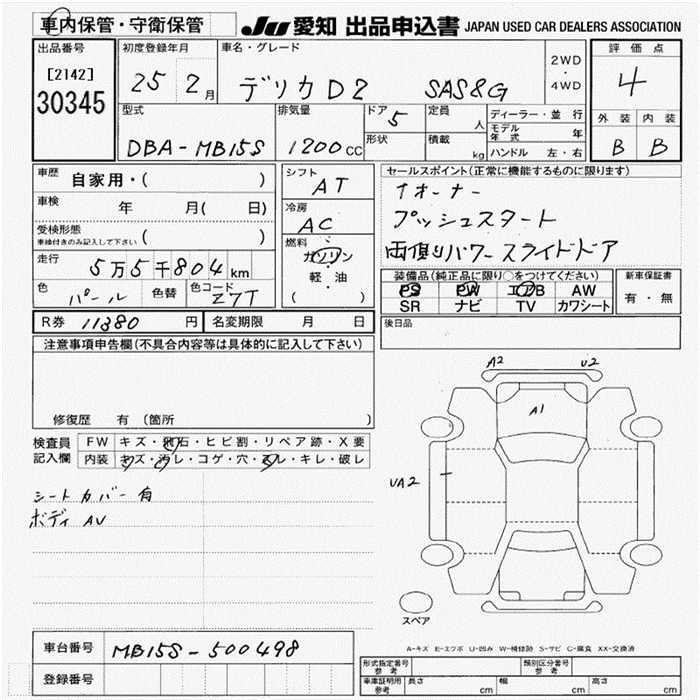 車内保管・守衛保管 JU 愛知 出品申込書 JAPAN USED CAR DEALERS ASSOCIATION
出品番号 初度登録年月 車名・グレード 2WD・4WD 評価点
[2142] 30345 25 2月 デリカD2 SAS8G 4
型式 排気量 ドア 5 定員 人 ディーラー・並行 外装 内装
DBA-MB15S 1200cc 形状 積載 kg モデル年式 年 B B
ハンドル 左・右
車歴 自家用・( ) シフト AT セールスポイント(正常に機能するものに限ります)
車検 年 月( 日) 冷房 AC 1オーナー
受検形態 ( ) プッシュスタート
車検付きのみ記入して下さい
走行 5万5千804km 燃料 ガソリン・軽・油 ( ) 両側パワースライドドア
色 パール 色替 色コード Z7T
装備品(純正品に限り○をつけてください) 新車保証書
PS PW エアB AW 有・無
SR ナビ TV カワシート
R券 11380円 名変期限 月 日 後日品
注意事項申告欄(不具合内容等は具体的に記入して下さい)
修復歴 有 (箇所 )
検査員記入欄 FW キズ・飛石・ヒビ割・リペア跡・X要
内装 キズ・汚レ・コゲ・穴・スレ・キレ・破レ
シートカバー有
ボディ AU
A2 U2
A1
UA2
スペア
A-キズ E-エクボ U-凹み W-補修跡 S-サビ C-腐食 XX-交換済
車台番号 MB15S-500498
登録番号
形式指定番号 参考 類別区分番号 参考
車庫証明用 参考 長さ cm 幅 cm 高さ cm